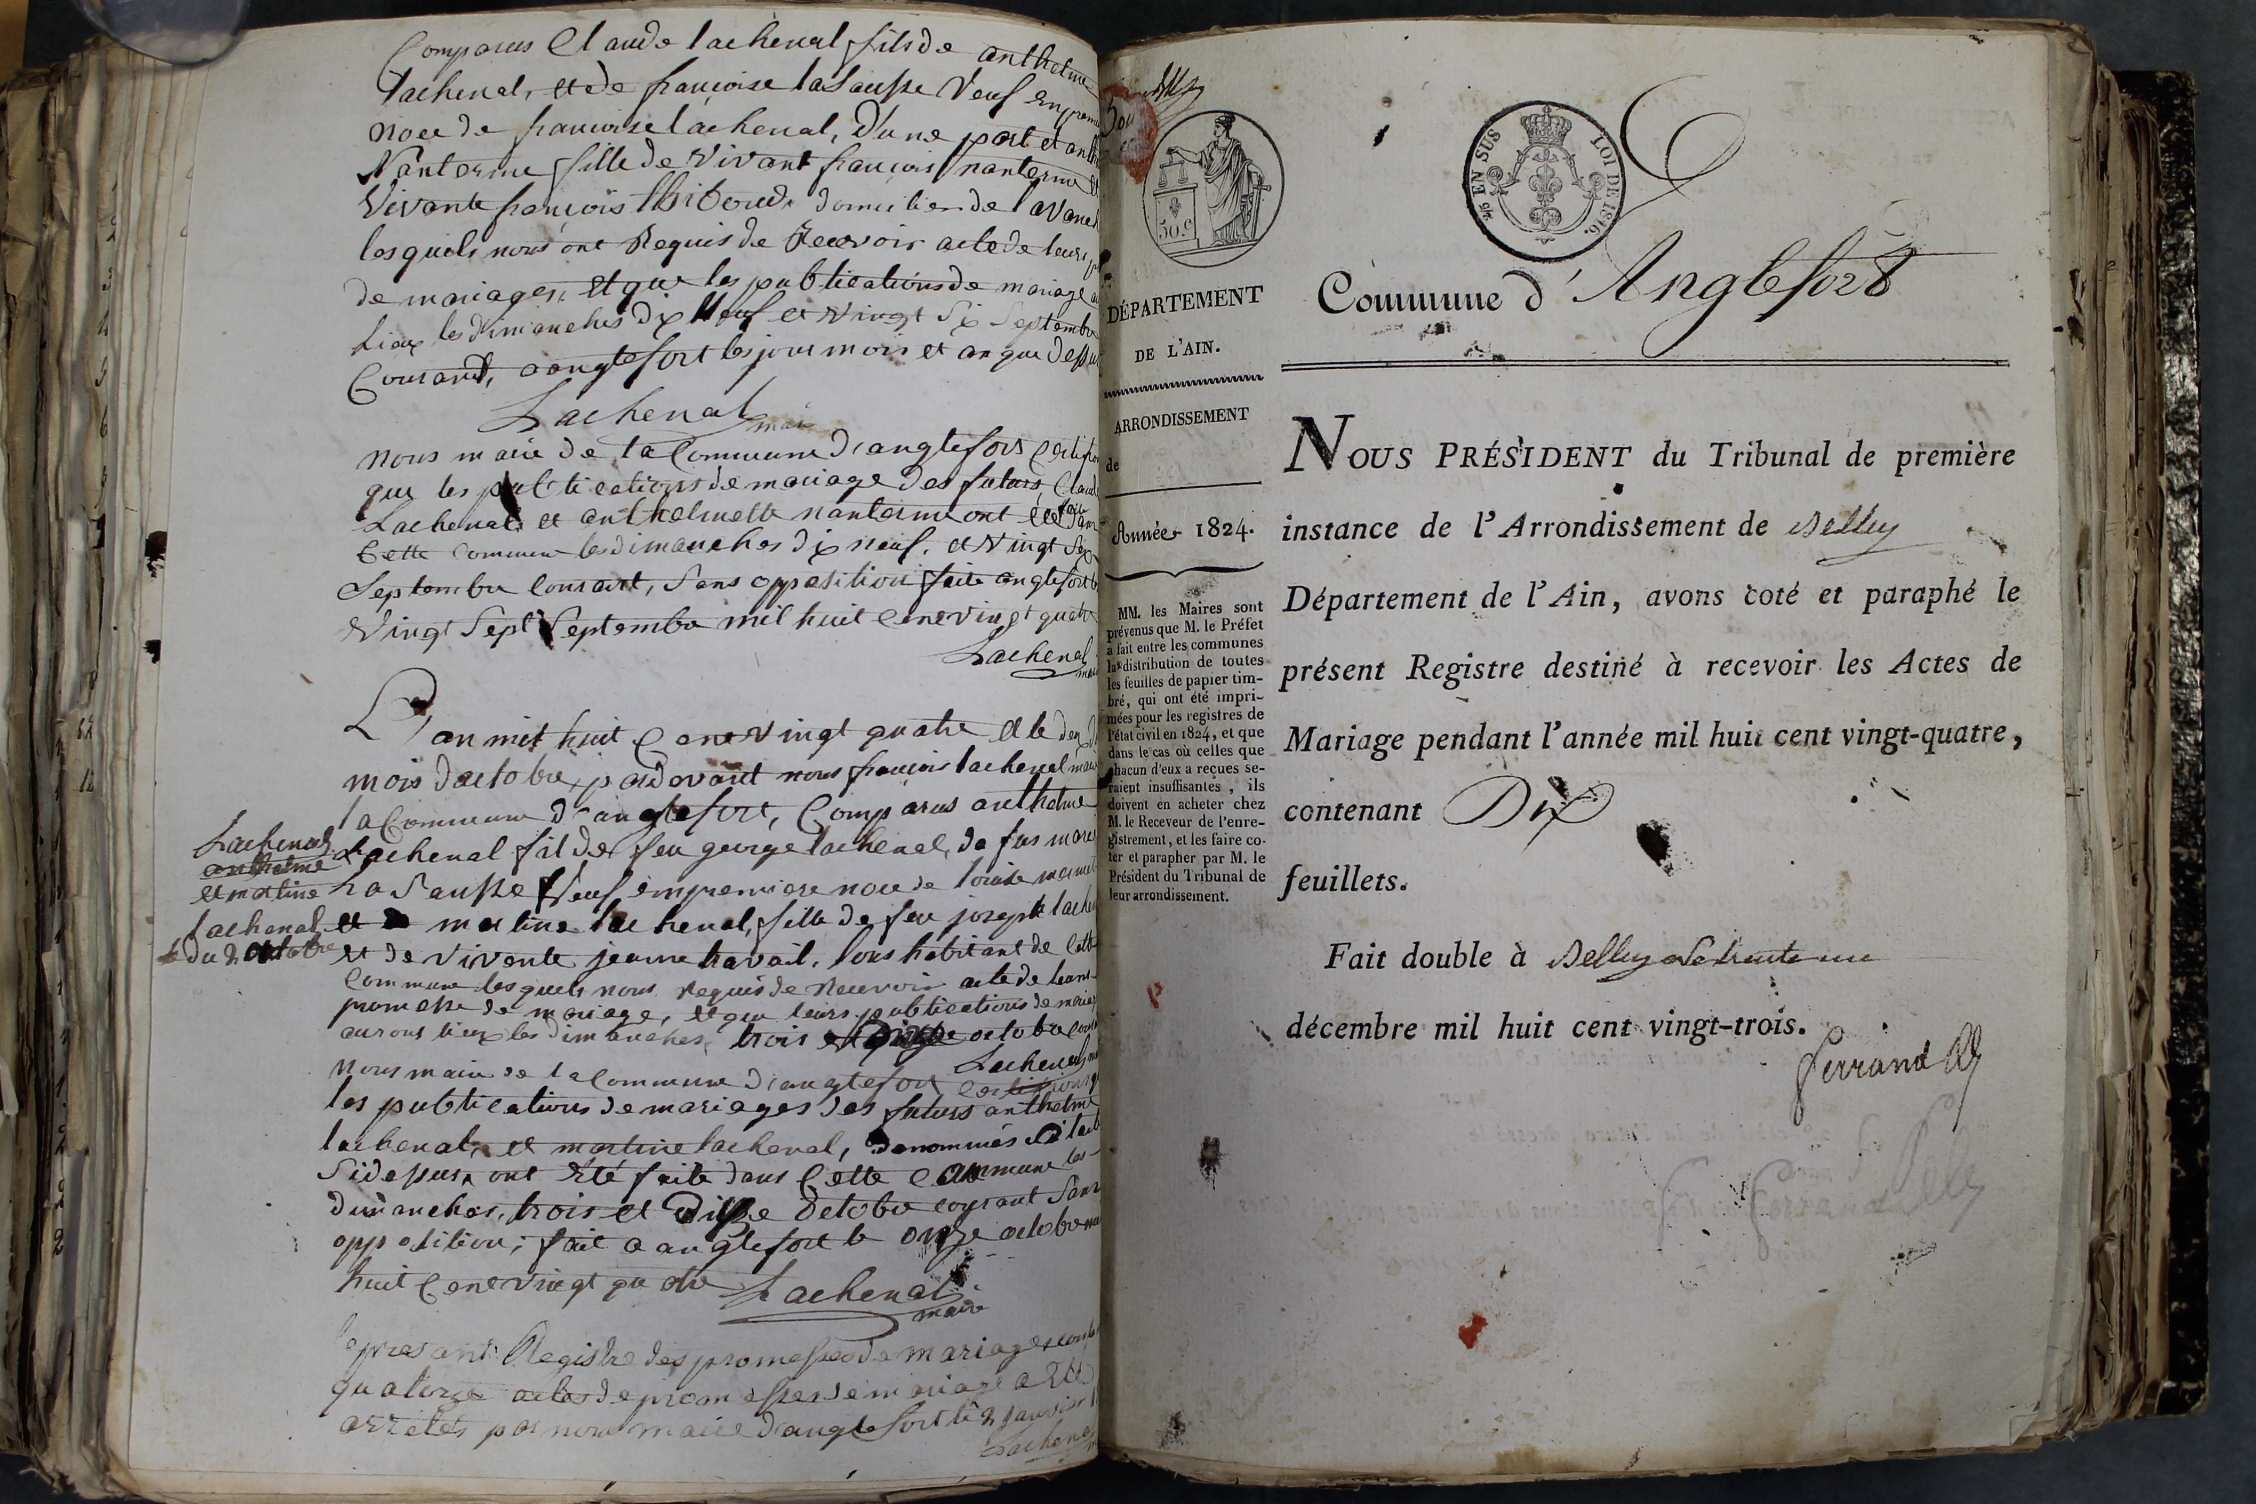 Comparus Claude lachenal fils de anthelme
lachenal, et de françoise lasausse Veuf en premi
noce de francoise lachenal, D'une part et anth
Nanterme fille de vivant francois nanterme et
Vivante francois thiboud domicilier de lavanch
lesquels nous ont Requis de Recevoir acte de leurs
de mariages, et que les publications de mariage
lieux les dimanches dix neuf et vingt six Septembre
Courant, a anglefort les jour mois et an que dessus
Lachenal
maire
nous maire de la Commune d'anglefort Certifion
que les publications de mariage des futurs, Claude
Lachenal et anthelmette nanterme ont été
Cette commune les dimanches dix neuf, et vingt six
Septembre courant, Sans opposition faite anglefort le
vingt Sept Septembre mil huit cent vingt quatre
Lachenal
maire
L'an mil huit Cent vingt quatre et le deux
mois d'octobre, pardevant nous francois lachenal maire
la Commune d'anglefort, Comparus anthelme
Lachenal
anthelme
et martine
lachenal
du 2 octobre
Lachenal fil de feu george lachenal, de
la Sausse Veuf en premiere noce de louise
et martine lachenal, fille de feu joseph lachen
et de vivente jeanne travail, tous habitant de Cette
Commune lesquels nous Requis de Recevoir acte de leurs
promesse de mariage, et que leurs publications de mariage
aurons lieux les dimanches, trois et octobre cour
Lachenal
nous maire de la Commune d'anglefort Certifions
les publications de mariages des futurs anthelme
lachenal, et martine lachenal, denommés
Sidessus, ont Eté faite dans Cette Commune les
dimanches, trois et Dixse octobre courant Sans
opposition; fait a anglefort le onze octobre mil
huit Cent vingt quatre
Lachenal
maire
le present Registre des promesses de mariages
quatorze actes de promesses de mariage a Eté
arretés par nous maire d'anglefort le 2 janvier
Lachenal
50 c
25 EN SUS LOI DE 1816.
DÉPARTEMENT
DE L'AIN.
ARRONDISSEMENT
de
Année 1824.
MM. les Maires sont
prévenus que M. le Préfet
a fait entre les communes
la distribution de toutes
les feuilles de papier tim-
bré, qui ont été impri-
mées pour les registres de
l'état civil en 1824, et que
dans le cas où celles que
chacun d'eux a reçues se-
raient insuffisantes, ils
doivent en acheter chez
M. le Receveur de l'enre-
gistrement, et les faire co-
ter et parapher par M. le
Président du Tribunal de
leur arrondissement.
Commune d'Anglefort
NOUS PRÉSIDENT du Tribunal de première
instance de l'Arrondissement de Belley
Département de l'Ain, avons coté et paraphé le
présent Registre destiné à recevoir les Actes de
Mariage pendant l'année mil huit cent vingt-quatre,
contenant Dix
feuillets.
Fait double à Belley le trente un
décembre mil huit cent vingt-trois.
Ferrand